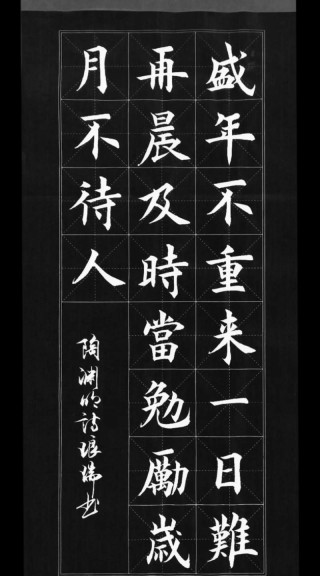 盛年不重来一日難
再晨及時當勉勵歲
月不待人
陶淵明詩琅瑞书